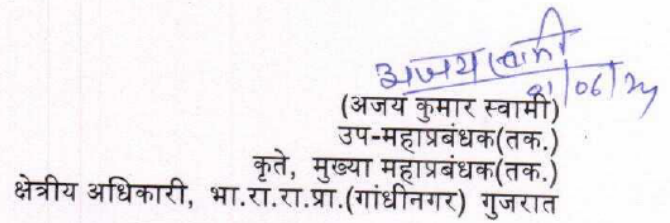 अजय स्वामी
01/06/24
(अजय कुमार स्वामी)
उप-महाप्रबंधक(तक.)
कृते, मुख्या महाप्रबंधक(तक.)
क्षेत्रीय अधिकारी, भा.रा.रा.प्रा.(गांधीनगर) गुजरात